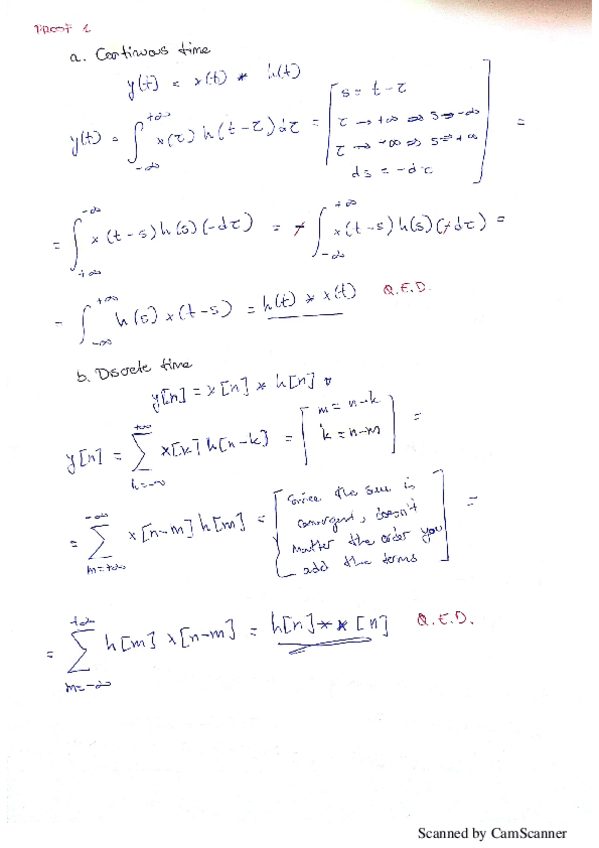 Proof 1
a. Continuous time
y(t) = x(t) * h(t)
y(t) = ∫_{-∞}^{+∞} x(τ) h(t-τ) dτ = [ s = t-τ
τ → +∞ ⇒ s → -∞
τ → -∞ ⇒ s → +∞
ds = -dτ ] =
= ∫_{+∞}^{-∞} x(t-s) h(s) (-dτ) = - ∫_{-∞}^{+∞} x(t-s) h(s) (-dτ) =
= ∫_{-∞}^{+∞} h(s) x(t-s) = h(t) * x(t) Q.E.D.
b. Discrete time
y[n] = x[n] * h[n]
y[n] = ∑_{k=-∞}^{+∞} x[k] h[n-k] = [ m = n-k
k = n-m ] =
= ∑_{m=+∞}^{-∞} x[n-m] h[m] = [ Since the sum is
convergent, doesn't
matter the order you
add the terms ] =
= ∑_{m=-∞}^{+∞} h[m] x[n-m] = h[n] * x[n] Q.E.D.
Scanned by CamScanner